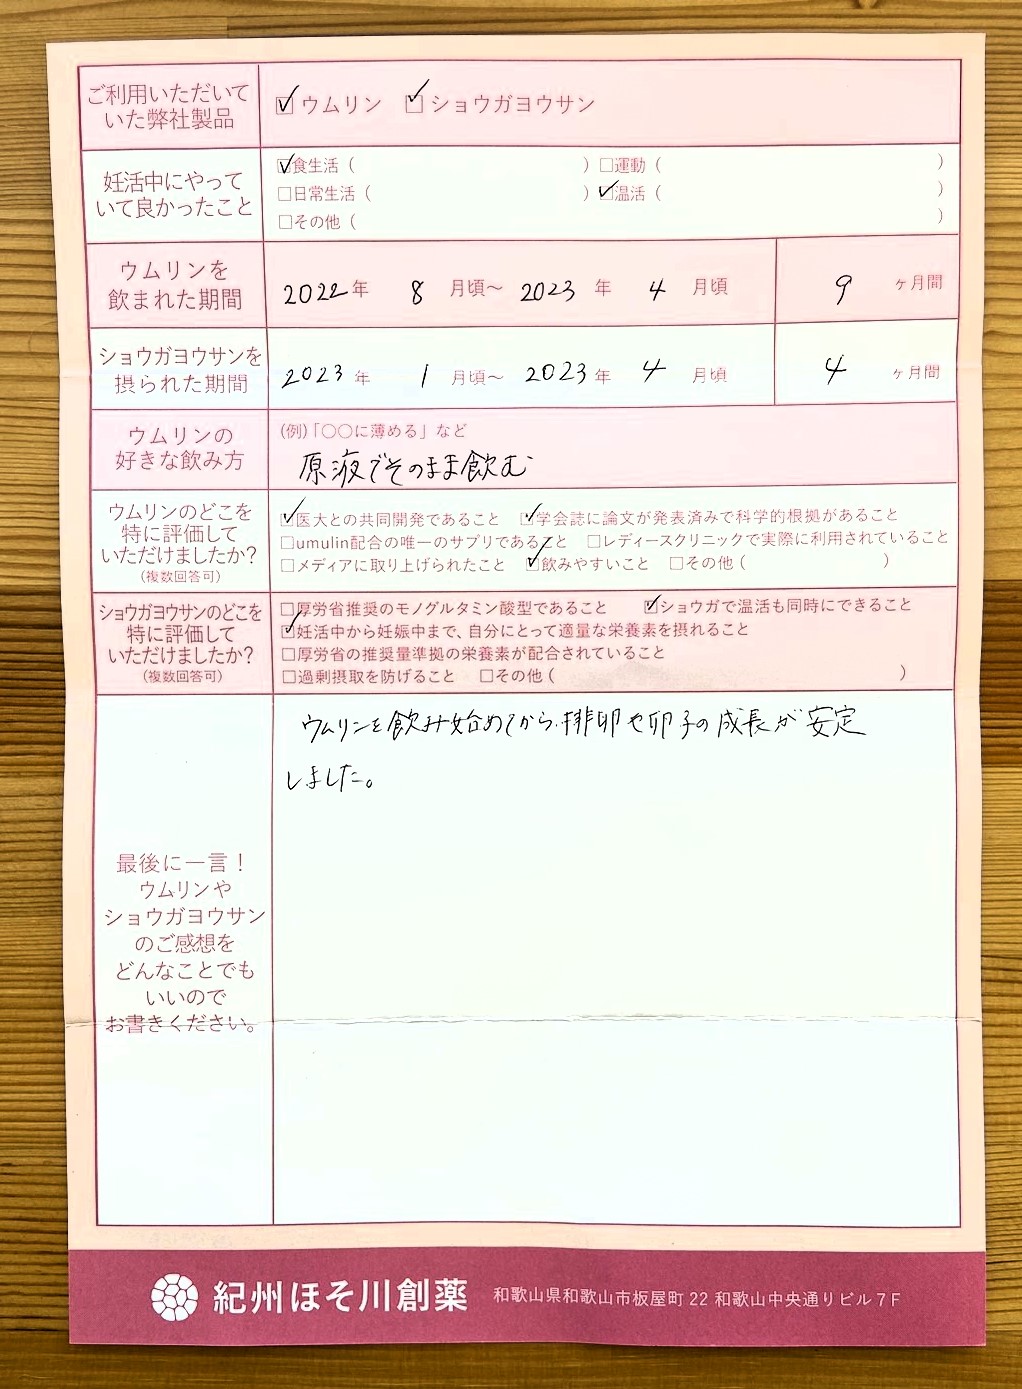 ご利用いただいて
いた弊社製品
☑ウムリン ☑ショウガヨウサン
妊活中にやって
いて良かったこと
☑食生活 ( ) □運動 ( )
□日常生活 ( ) ☑温活 ( )
□その他 ( )
ウムリンを
飲まれた期間
2022年 8 月頃〜 2023 年 4 月頃
9 ヶ月間
ショウガヨウサンを
摂られた期間
2023 年 1 月頃〜 2023 年 4 月頃
4 ヶ月間
ウムリンの
好きな飲み方
(例)「○○に薄める」など
原液でそのまま飲む
ウムリンのどこを
特に評価して
いただけましたか?
(複数回答可)
☑医大との共同開発であること ☑学会誌に論文が発表済みで科学的根拠があること
□umulin配合の唯一のサプリであること □レディースクリニックで実際に利用されていること
□メディアに取り上げられたこと ☑飲みやすいこと □その他 ( )
ショウガヨウサンのどこを
特に評価して
いただけましたか?
(複数回答可)
□厚労省推奨のモノグルタミン酸型であること ☑ショウガで温活も同時にできること
☑妊活中から妊娠中まで、自分にとって適量な栄養素を摂れること
□厚労省の推奨量準拠の栄養素が配合されていること
□過剰摂取を防げること □その他 ( )
最後に一言！
ウムリンや
ショウガヨウサン
のご感想を
どんなことでも
いいので
お書きください。
ウムリンを飲み始めてから、排卵や卵子の成長が安定
しました。
紀州ほそ川創薬 和歌山県和歌山市板屋町 22 和歌山中央通りビル 7F